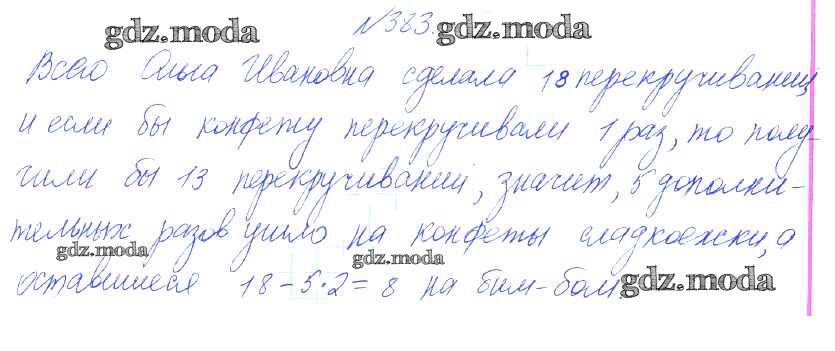 №383.
gdz.moda gdz.moda
Всего Ольга Ивановна сделала 18 перекручиваний,
и если бы конфету перекручивали 1 раз, то полу-
чили бы 13 перекручиваний, значит, 5 дополни-
тельных разов ушло на конфеты сладкоежки, а
gdz.moda gdz.moda
оставшиеся 18-5·2=8 на бим-бом.
gdz.moda